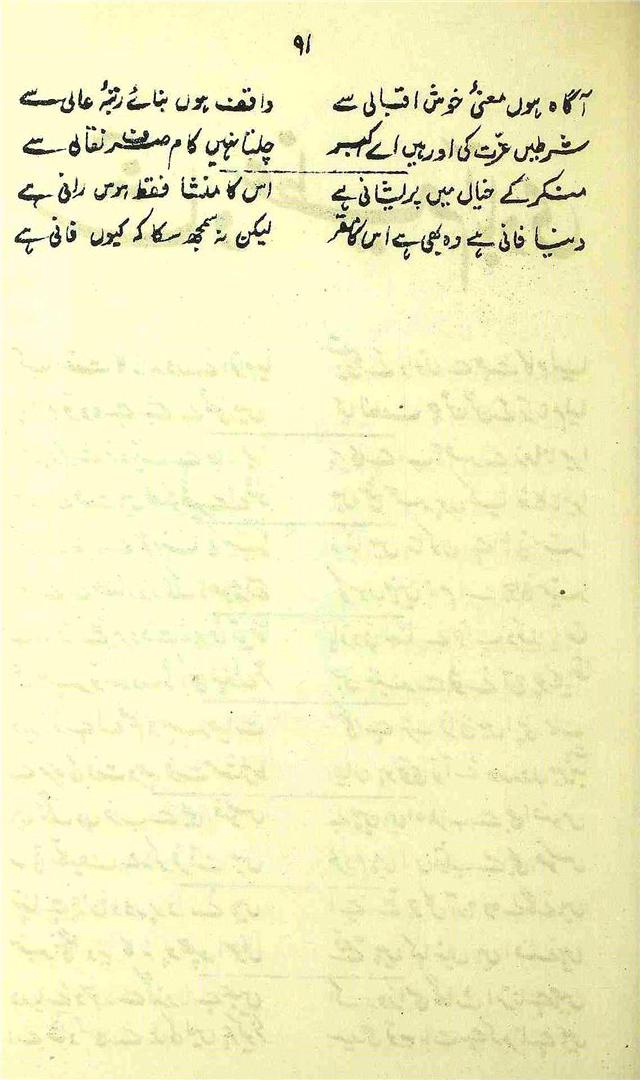 ۹۱
آگاہ ہوں معنیٔ خوش اقبالی سے واقف ہوں بنائے رتبۂ عالی سے
شرطیں عزت کی اور ہیں اے اکبر چلتا نہیں کام صرف نقالی سے
منکر کے خیال میں پریشانی ہے اس کا منشا فقط ہوس رانی ہے
دنیا فانی ہے وہ بھی ہے اس کا مقر لیکن نہ سمجھ سکا کہ کیوں فانی ہے